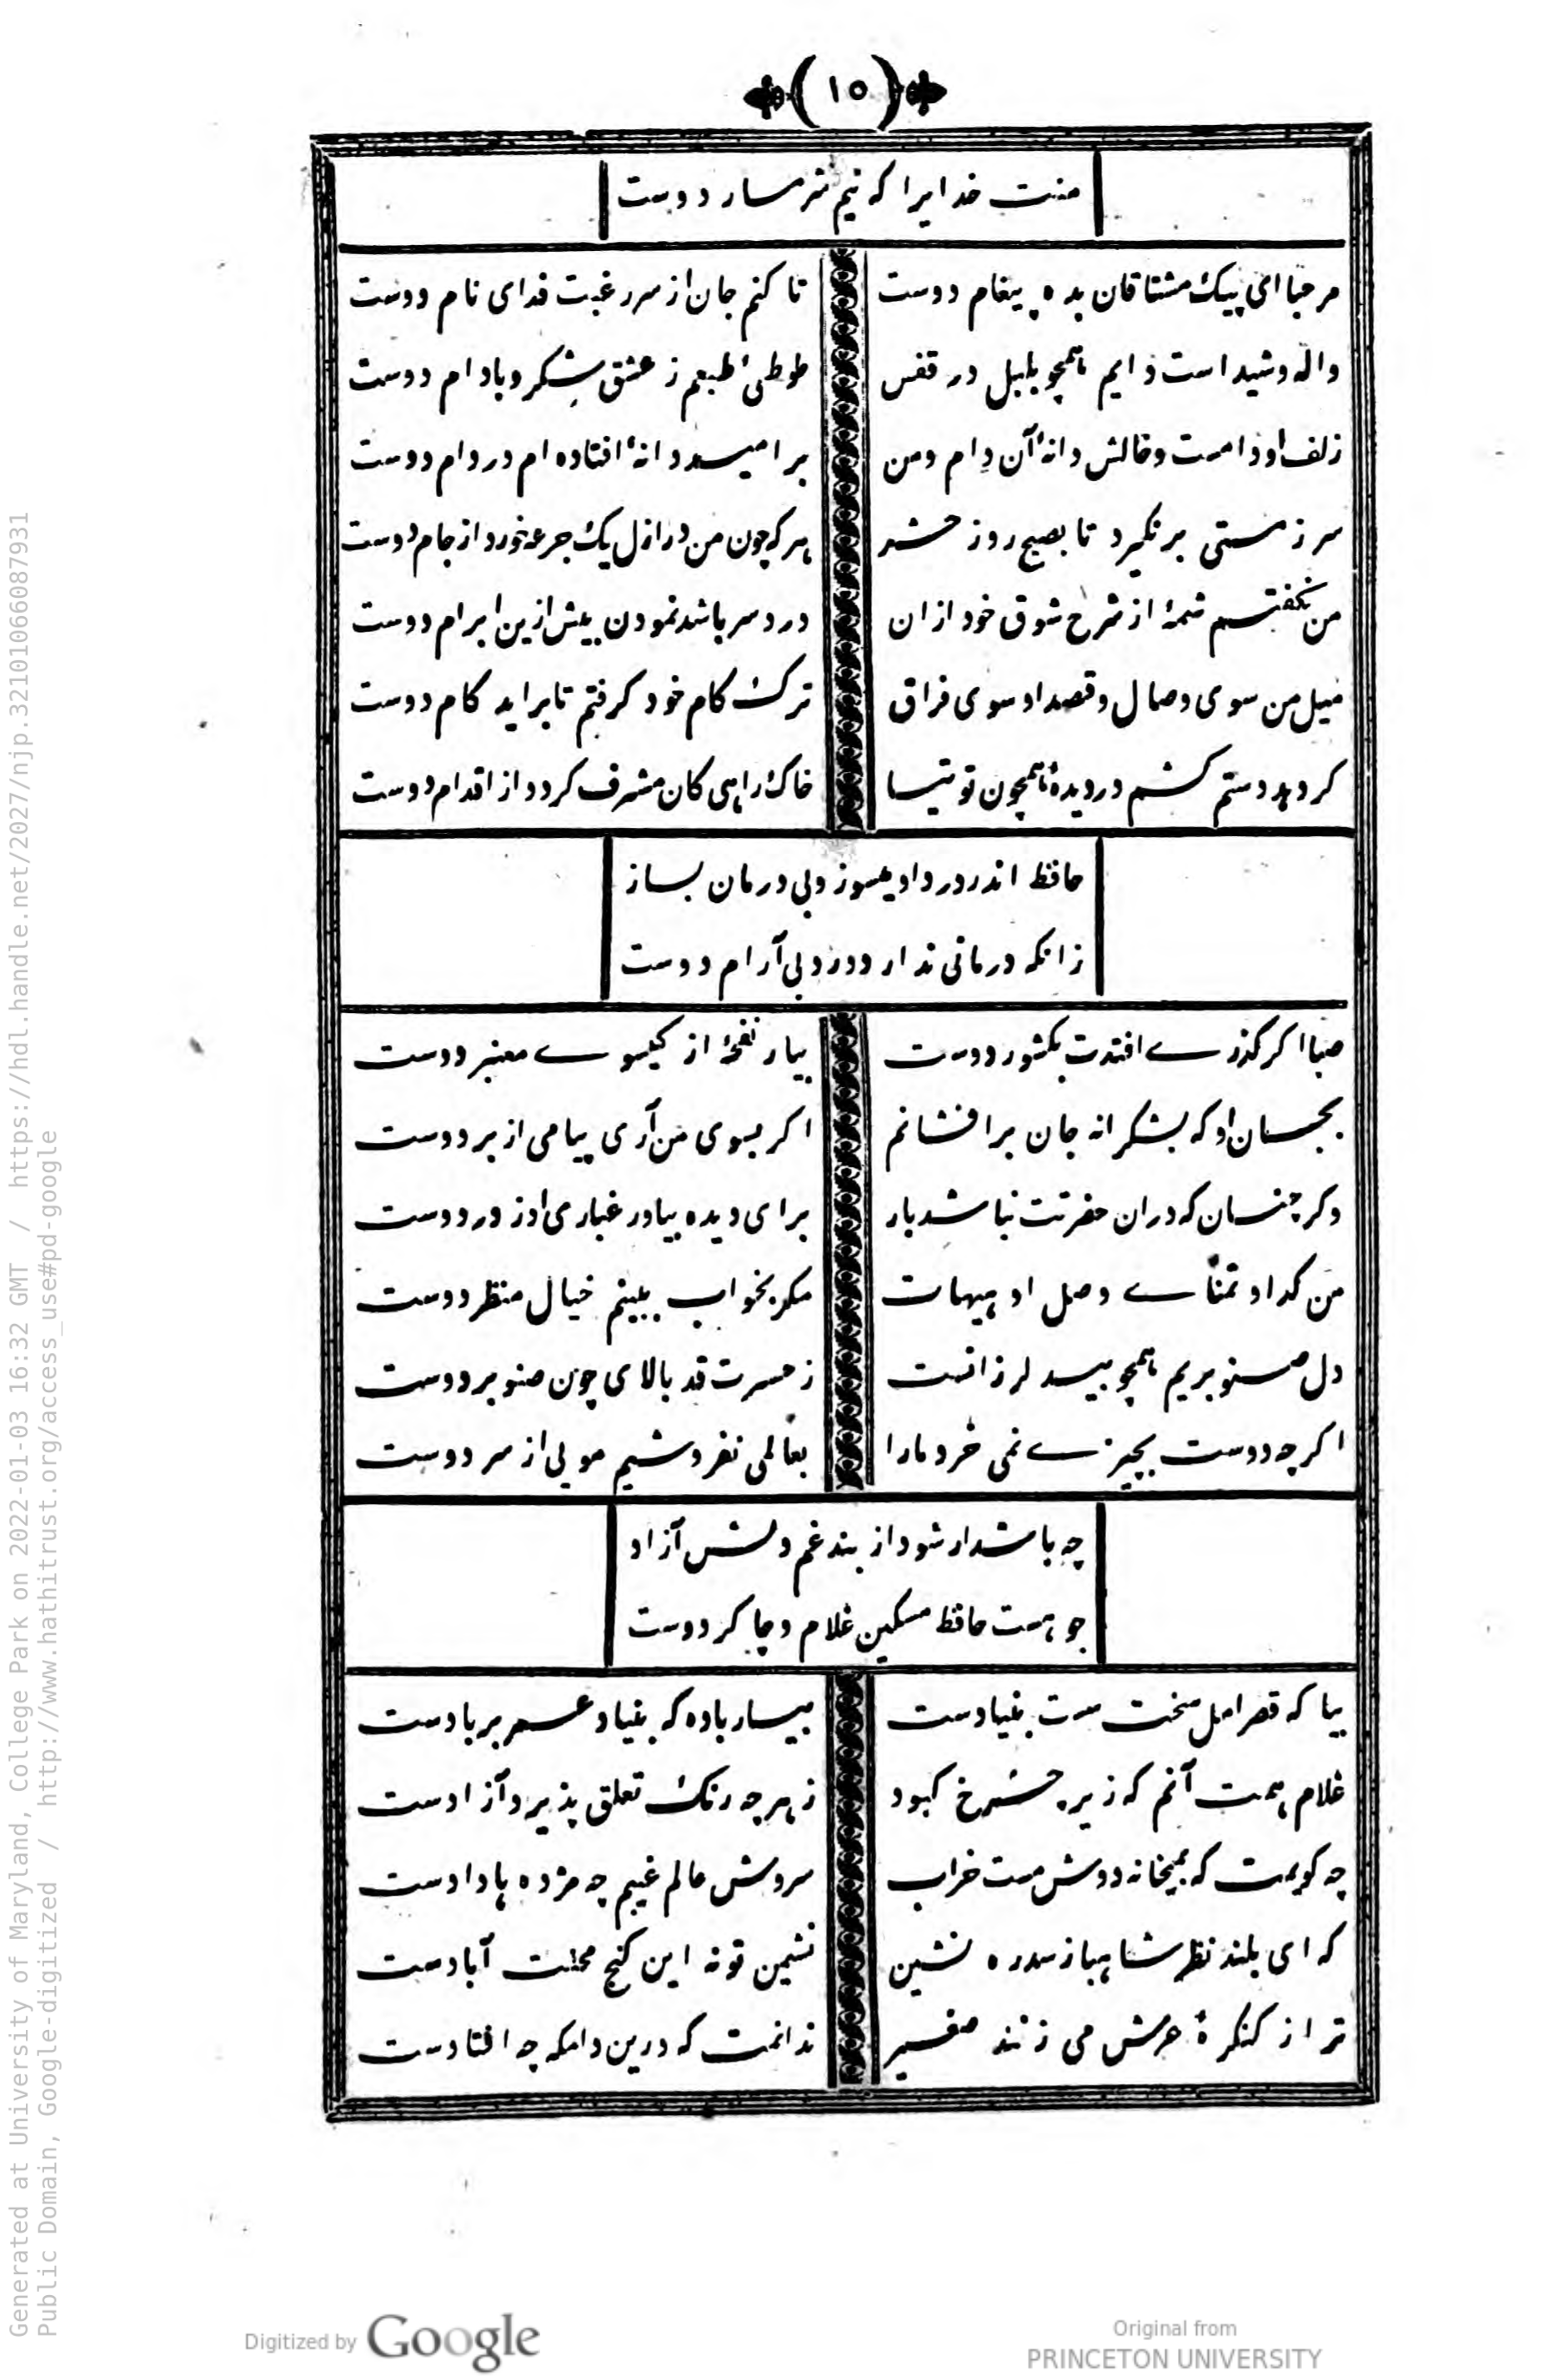 (١٥)
منت خدایرا که نیم شرمسار دوست
مرحبا ای پیک مشتاقان بده پیغام دوست
تا کنم جان از سر رغبت فدای نام دوست
واله وشیداست دایم همچو بلبل در قفس
طوطیٔ طبعم ز عشق شکر وبادام دوست
زلف او دامست وخالش دانهٔ آن دام ومن
بر امید دانهٔ افتاده ام در دام دوست
سر ز مستی بر نکیرد تا بصبح روز حشر
هر که چون من در ازل یک جرعه خورد از جام دوست
من نکفتم شمهٔ از شرح شوق خود ازان
دردسر باشد نمودن بیش ازین ابرام دوست
میل من سوی وصال وقصد او سوی فراق
ترک کام خود کرفتم تا براید کام دوست
کر دهد دستم کشم در دیدهٔ همچون توتیا
خاک راهی کان مشرف کردد از اقدام دوست
حافظ اندر درد او میسوز وبی درمان بساز
زانکه درمانی ندارد درد بی آرام دوست
صبا اکر کذرے افتدت بکشور دوست
بیار نفحهٔ از کیسوے معنبر دوست
بجان او که بشکرانه جان برافشانم
اکر بسوی من آری پیامی از بر دوست
وکر چنان که دران حضرتت نباشد بار
برای دیده بیاور غباری از در دوست
من کدا و تمناے وصل او هیهات
مکر بخواب ببینم خیال منظر دوست
دل صنوبریم همچو بید لرزانست
ز حسرت قد بالای چون صنوبر دوست
اکر چه دوست بچیزے نمی خرد مارا
بعالمی نفروشیم مویی از سر دوست
چه باشد ار شود از بند غم دلش آزاد
چو هست حافظ مسکین غلام وچاکر دوست
بیا که قصر امل سخت سست بنیادست
بیار باده که بنیاد عمر بر بادست
غلام همت آنم که زیر چرخ کبود
ز هر چه رنک تعلق پذیرد آزادست
چه کویمت که بمیخانه دوش مست خراب
سروش عالم غیبم چه مژده ها دادست
که ای بلند نظر شاهباز سدره نشین
نشیمن تو نه این کنج محنت آبادست
ترا ز کنکرهٔ عرش می زنند صفیر
ندانمت که درین دامکه چه افتادست
Generated at University of Maryland, College Park on 2022-01-03 16:32 GMT / https://hdl.handle.net/2027/njp.32101066087931
Public Domain, Google-digitized / http://www.hathitrust.org/access_use#pd-google
Digitized by Google
Original from
PRINCETON UNIVERSITY